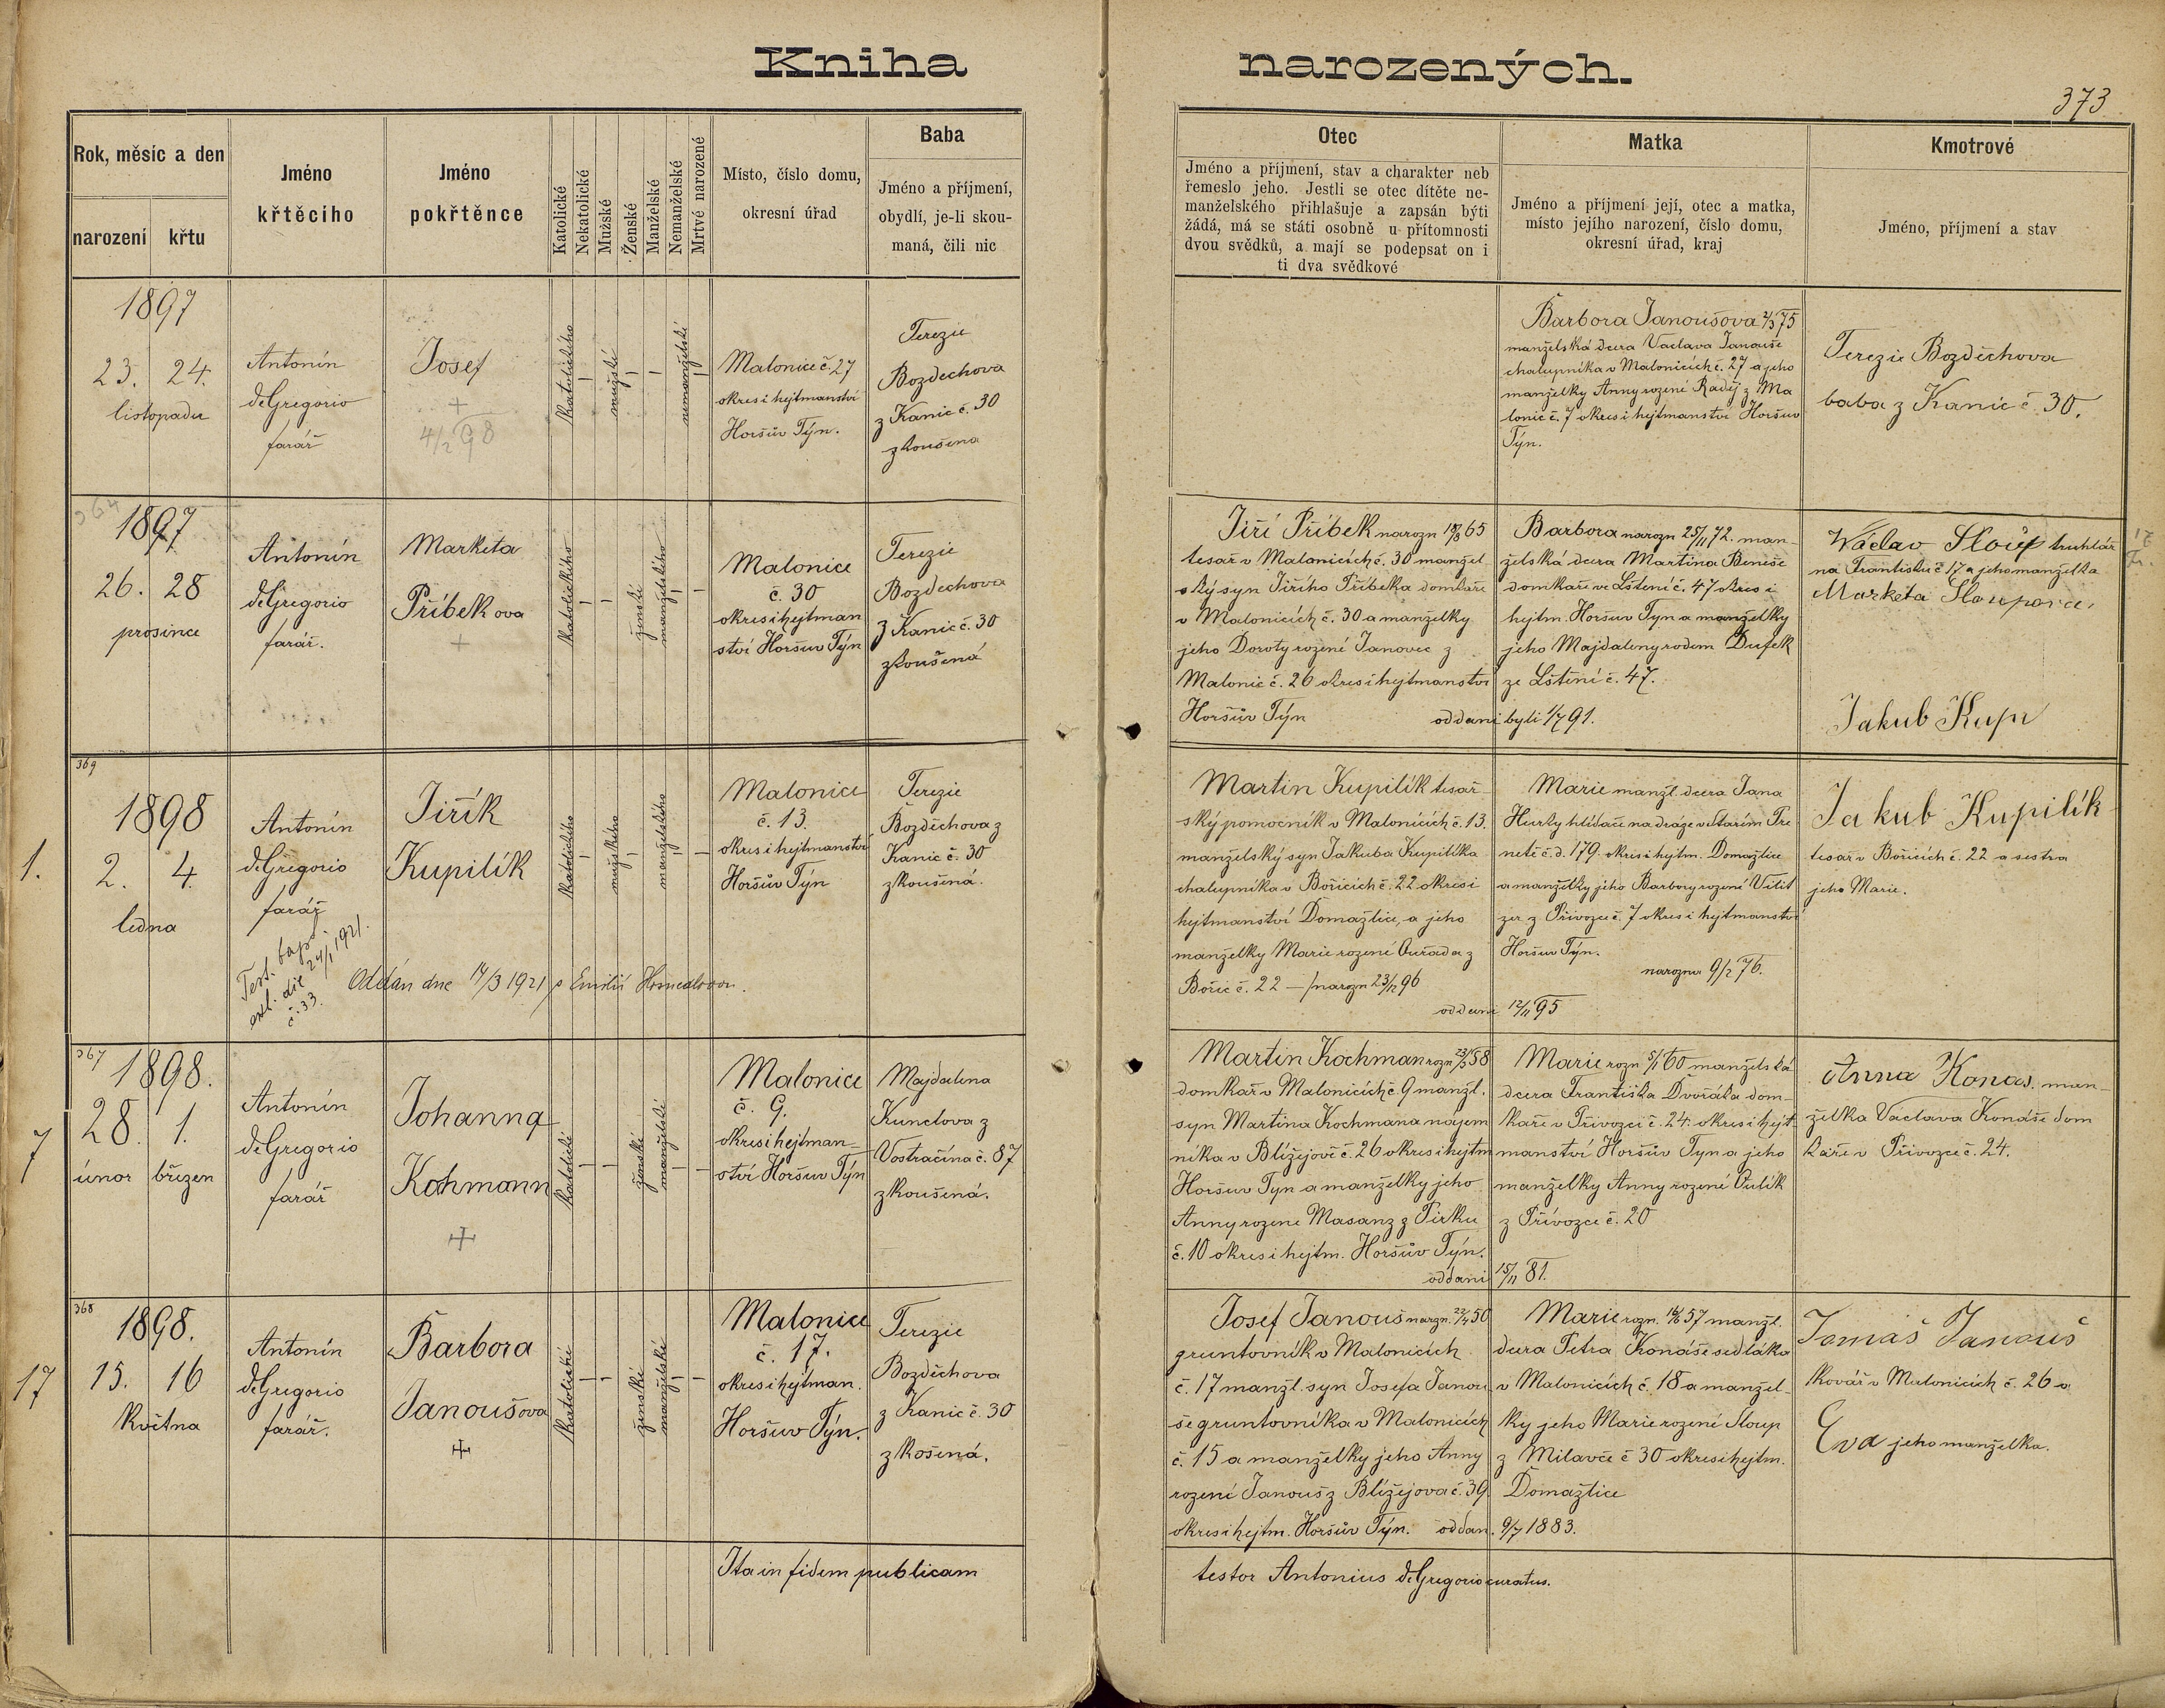 Kniha narozených.
373
Rok, měsíc a den
narození křtu
Jméno
křtěcího
Jméno
pokřtěnce
Katolické
Nekatolické
Mužské
Ženské
Manželské
Nemanželské
Mrtvé narozené
Místo, číslo domu,
okresní úřad
Baba
Jméno a příjmení,
obydlí, je-li skou-
maná, čili nic
Otec
Jméno a příjmení, stav a charakter neb
řemeslo jeho. Jestli se otec dítěte ne-
manželského přihlašuje a zapsán býti
žádá, má se státi osobně u přítomnosti
dvou svědků, a mají se podepsat on i
ti dva svědkové
Matka
Jméno a příjmení její, otec a matka,
místo jejího narození, číslo domu,
okresní úřad, kraj
Kmotrové
Jméno, příjmení a stav
1897
23. 24.
listopadu
Antonín
deGregorio
farář
Josef
+
4/2 98
katolického
mužské
nemanželské
Malonice č. 27
okres i hejtmanství
Horšův Týn.
Terezie
Bozděchova
z Kanic č. 30
zkoušena
Barbora Janoušova 2/3 75
manželská dcera Vaclava Janouše
chalupníka v Malonicích č. 27 a jeho
manželky Anny rozené Radý z Ma
lonic č. 7 okres i hejtmanství Horšuv
Týn.
Terezie Bozděchova
baba z Kanic č. 30.
364
1897
26. 28
prosince
Antonín
deGregorio
farář.
Marketa
Příbekova
+
katolického
ženské
manželského
Malonice
č. 30
okres i hejtman
ství Horšuv Týn
Terezie
Bozdechova
z Kanic č. 30
zkoušená
Jiří Příbek narozn 18/8 65
tesař v Malonicích č. 30 manžel
ský syn Jiřího Příbeka domkaře
v Malonicích č. 30 a manželky
jeho Doroty rozené Janovec z
Malonic č. 26 okres i hejtmanství
Horšův Týn oddani byli 1/7 91.
Barbora narozn 25/11 72. man-
želská dcera Martina Beneše
domkaře ve Lštení č. 47 okres i
hejtm. Horšuv Týn a manželky
jeho Majdaleny rodem Dufek
ze Lštění č. 47.
Václav Sloup truhlář
na Františku č 17 a jeho manželka
Marketa Sloupova.
Jakub Kupr
369
1.
1898
2. 4.
ledna
Antonín
deGregorio
farář
Test. bapt.
exh. die 24/1 1921.
č. 33.
Jiřík
Kupilík
Oddán dne 14/3 1921 s Emilií
katolického
mužského
manželského
Malonice
č. 13.
okres i hejtmanství
Horšův Týn
Terezie
Bozděchova z
Kanic č. 30
zkoušená.
Martin Kupilík tesař-
ský pomocník v Malonicích č. 13.
manželský syn Jakuba Kupilíka
chalupníka v Bořicích č. 22 okres i
hejtmanství Domažlice, a jeho
manželky Marie rozené Ouřada z
Bořic č. 22 – narozn 23/12 96
oddani 12/11 95
Marie manžl. dcera Jana
Hurty hlídače na dráze ve Starém Pře
netě č. d. 179. okres i hejtm. Domažlice
a manželky jeho Barbory rozené Vilit
zer z Přivozce č. 7 okres i hejtmanství
Horšuv Týn.
narozna 9/2 76.
Jakub Kupilík
tesař v Bořicích č. 22 a sestra
jeho Marie.
367
7
1898.
28. 1.
únor březen
Antonín
deGregorio
farář
Johanna
Kohmann
+
katolické
ženské
manželské
Malonice
č. 9.
okres i hejtman-
ství Horšuv Týn
Majdalena
Kunclova z
Vostračína č. 87
zkoušená.
Martin Kochman rozn 23/3 58
domkař v Malonicích č 9 manžl.
syn Martina Kochmana nájem
níka v Blížejově č. 26 okres i hejtm
Horšuv Týn a manželky jeho
Anny rozené Masanz z Pirku
č. 10 okres i hejtm. Horšův Týn.
oddani 15/11 81.
Marie rozn 5/1 60 manželská
dcera Františka Dvořáka dom-
kaře v Přivozci č. 24. okres i hejt-
manství Horšův Týn a jeho
manželky Anny rozené Oulík
z Přívozce č. 20
Anna Konas. man-
želka Vaclava Konáše dom
káře v Přivozce č. 24.
368
17
1898.
15. 16
Května
Antonín
deGregorio
farář.
Barbora
Janoušova
+
katolické
ženské
manželské
Malonice
č. 17.
okres i hejtman.
Horšuv Týn.
Terezie
Bozděchova
z Kanic č. 30
zkošená.
Josef Janouš narzn. 22/4 50
gruntovník v Malonicích
č. 17 manžl. syn Josefa Janou
še gruntovníka v Malonicích
č. 15 a manželky jeho Anny
rozené Janouš z Blížejova č. 39.
okres i hejtm. Horšův Týn. oddan. 9/7 1883.
Marie rozn. 16/6 57 manžl.
dcera Petra Konáše sedláka
v Malonicích č. 18 a manžel-
ky jeho Marie rozené Sloup
z Milavče č 30 okres i hejtm.
Domažlice
Tomáš Janouš
kovář v Malonicích č. 26 a
Eva jeho manželka.
Ita in fidem publicam
testor Antonius deGregorio curatus.